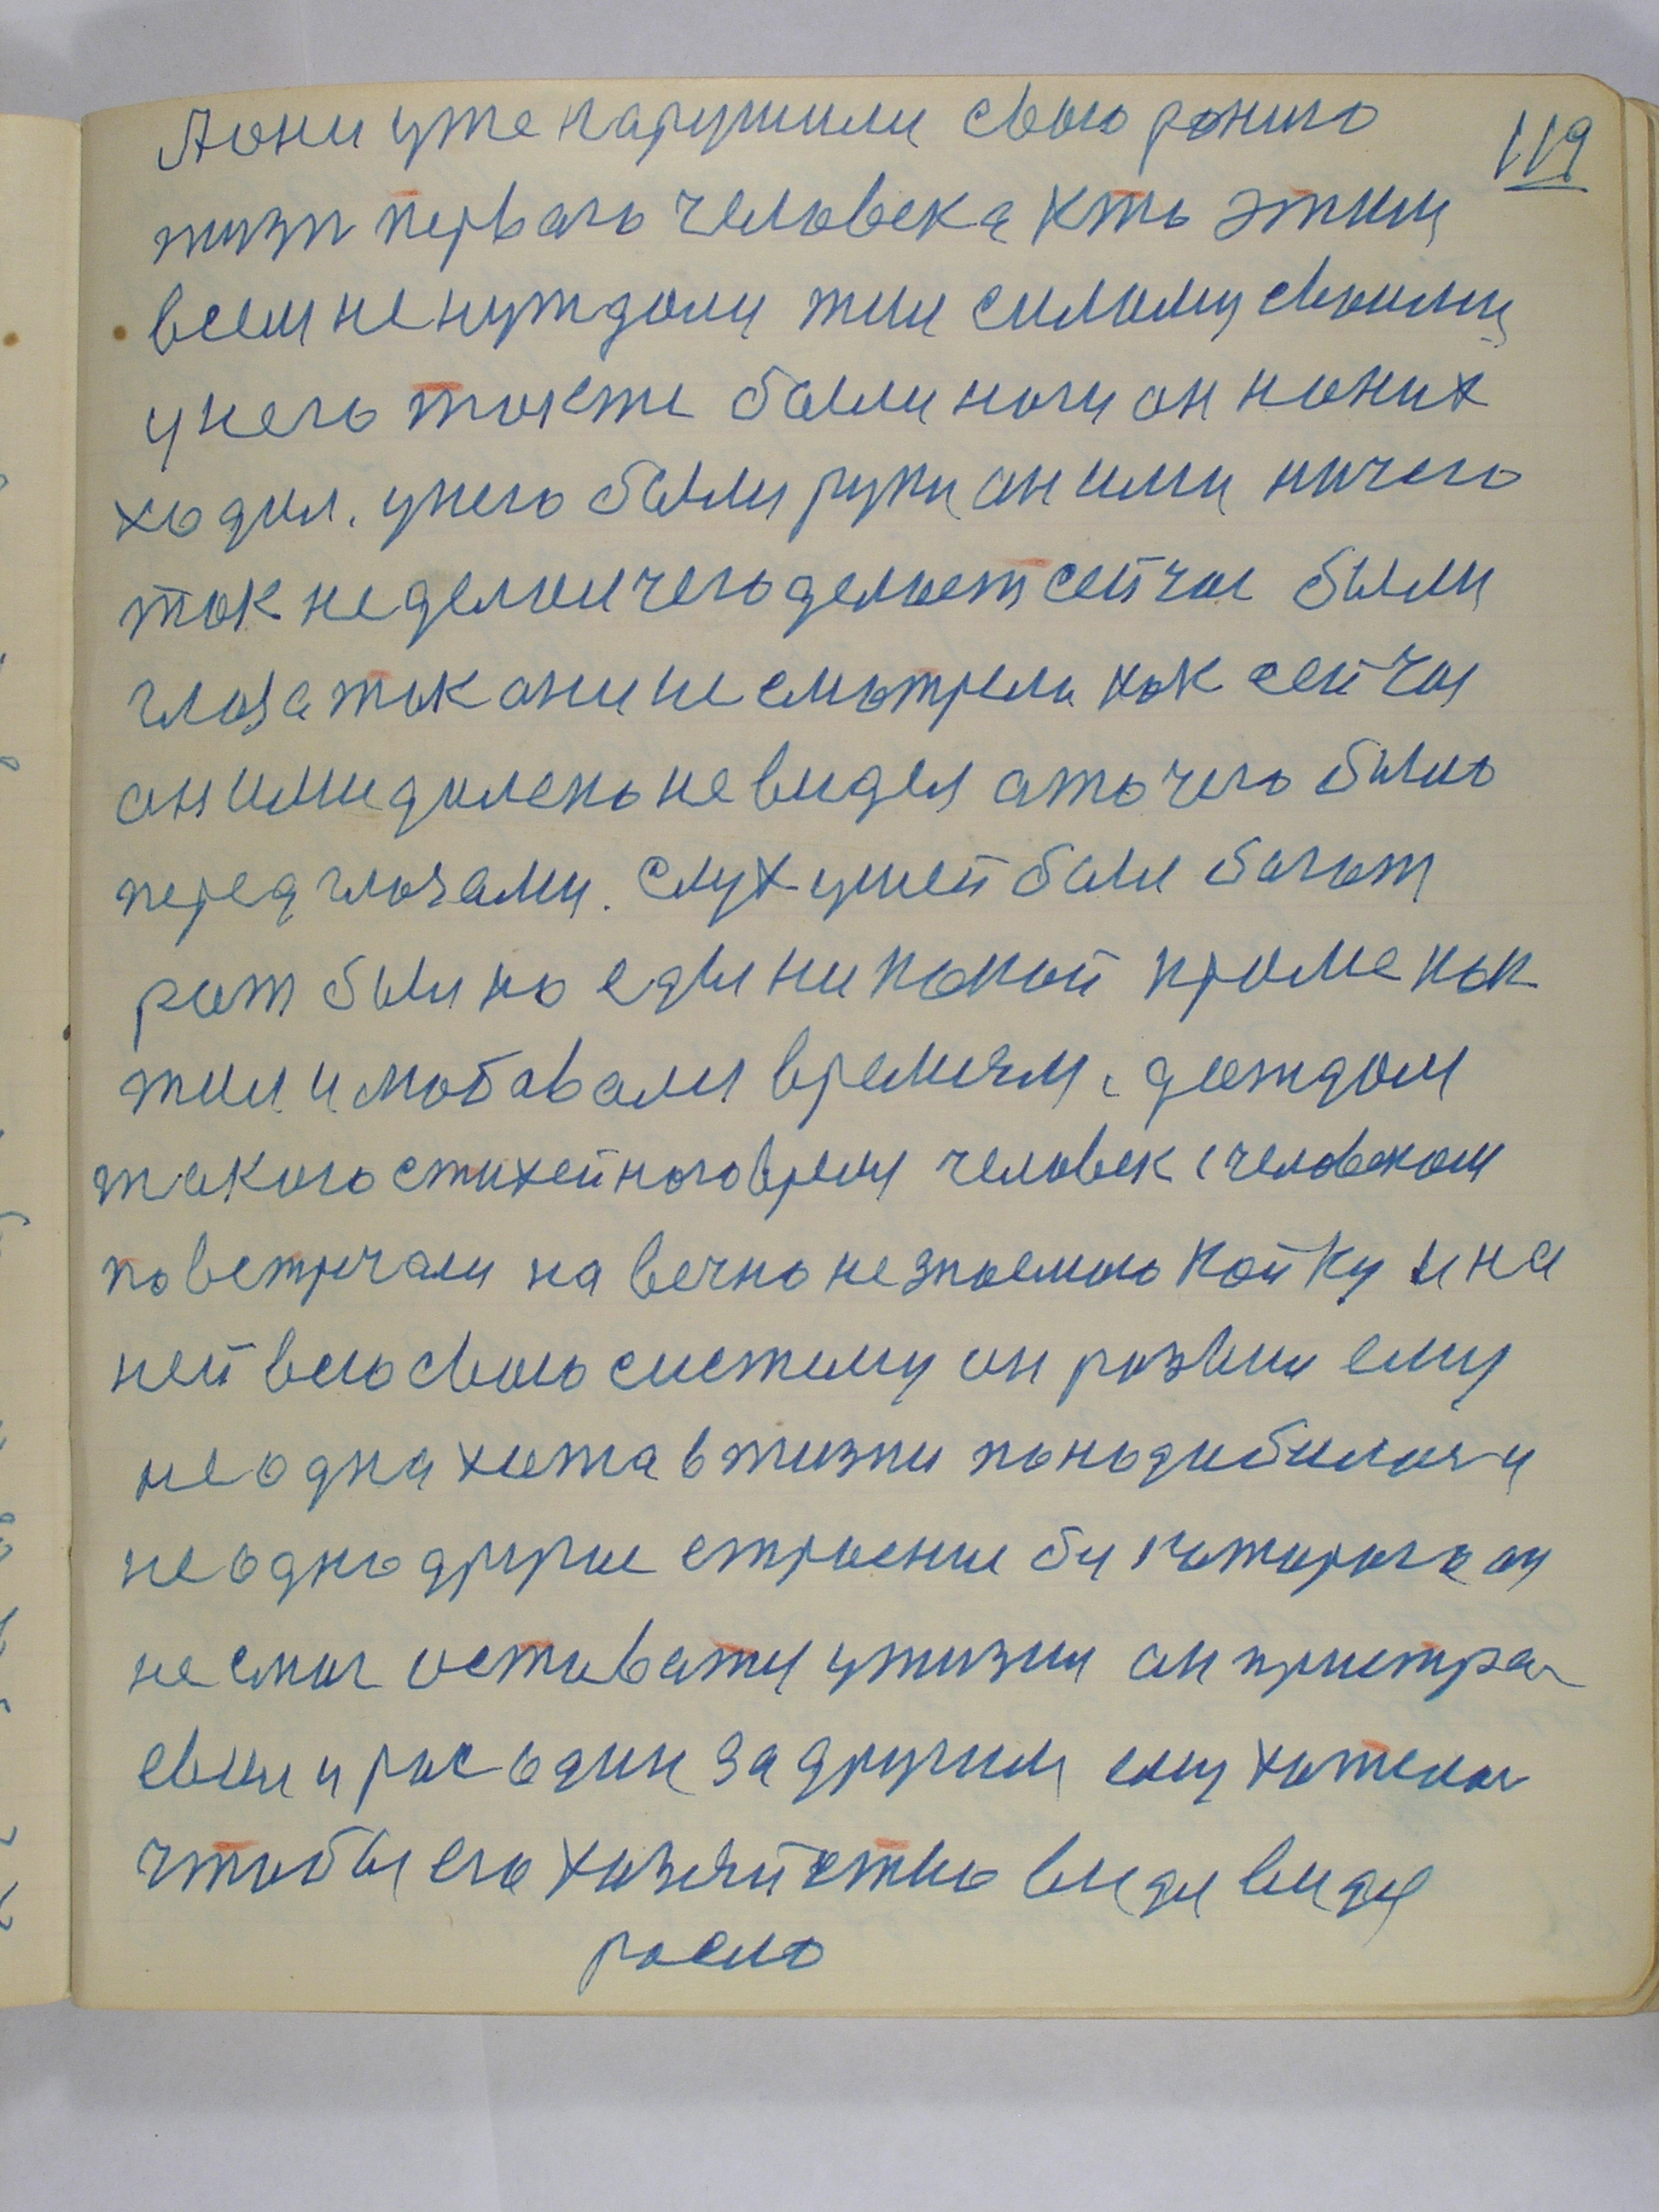 119
А они уже нарушили свою ранию
жизн первого человека кто этим
всем не нуждали жил силами своими
у него также были ноги он на них
ходил. у него были руки он ими ничего
так не делал чего делает сейчас были
глаза так они не смотрели как сейчас
он ими далеко не видел а то чего было
перед глазами. слух ушей был богат
рот был но еды никакой кроме как
жил и любавался времям. до
такого стихейного время человек с человеком
повстричали на вечно не знаемою койку и на
ней всю свою систему он развил ему
не одна хата в жизни понадибилася
не одно другие строение биз которого он
не смог оставатся у жизни он пристра
евал и рос один за другим ему хателос
чтобы его хазяйство види види
росло